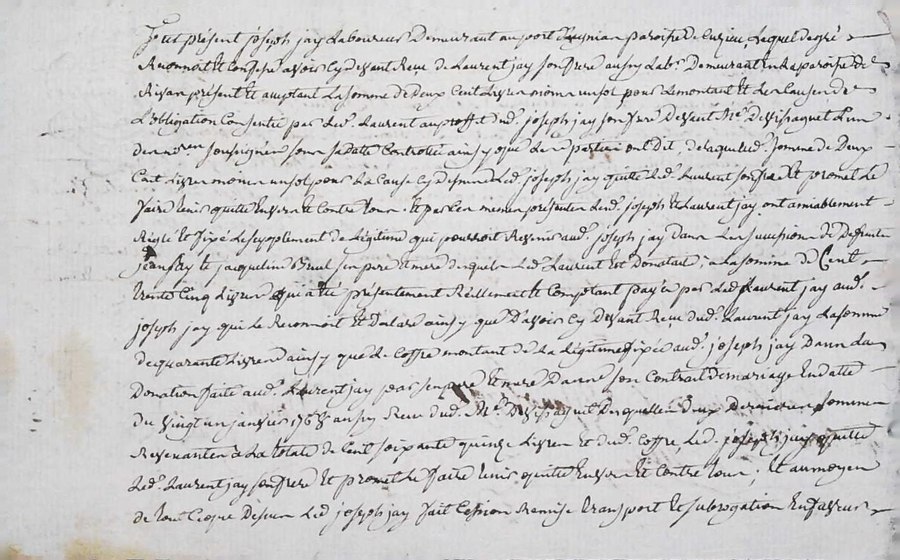 fut présent joseph jay Laboureur Demeurant au port paroisse de Cuzieu, Lequel de gré
Reconnoit et Confesse avoir Cy devant Reçu de Laurent jay son frere aussy Labr. Demeurant en la paroisse de
présent et acceptant La somme de Deux Cent Livres moins un sol pour Le montant et Les Causes de
L'obligation Consentie par Led. Laurent au proffit dud. joseph jay son frere Devant Me. L'un
des nores. soussignés sous sa datte Controllée ainsy que Les parties ont dit, de laquelle somme de Deux
Cent Livres moins un sol pour La Cause Cy dessus Led. joseph jay quitte Led. Laurent son frere et promet Le
faire tenir quitte Envers et Contre tous. et par Ces memes présentes Led. joseph et Laurent jay ont amiablement
Réglé et fixé Le supplement de Légitime qui pourroit Revenir aud. joseph jay Dans Les successions de Deffunts
jean jay et jacqueline ses pere et mere desquels Led. Laurent Est Donataire, a La somme de Cent
trente Cinq Livres qui a été présentement Réellement et Comptant payée par Led. Laurent jay aud.
joseph jay qui Le Reconnoit et Déclare ainsy que D'avoir Cy devant Reçu dud. Laurent jay La somme
de quarante Livres ainsy que Le Coffre montant de La Légitime fixée aud. joseph jay Dans La
Donation faite aud. Laurent jay par ses pere et mere Dans son Contrat de mariage En datte
du vingt un janvier 1768 aussy Reçu dud. Me. Lesquelles Deux Dernieres sommes
Revenantes a La totale de Cent soixante quinze Livres et dud. Coffre, Led. joseph jay quitte
Led. Laurent jay son frere et promet Le faire tenir quitte Envers et Contre tous; et au moyen
de tout Ceque Dessus Led. joseph jay fait Cession Remise transport et subrogation En faveur